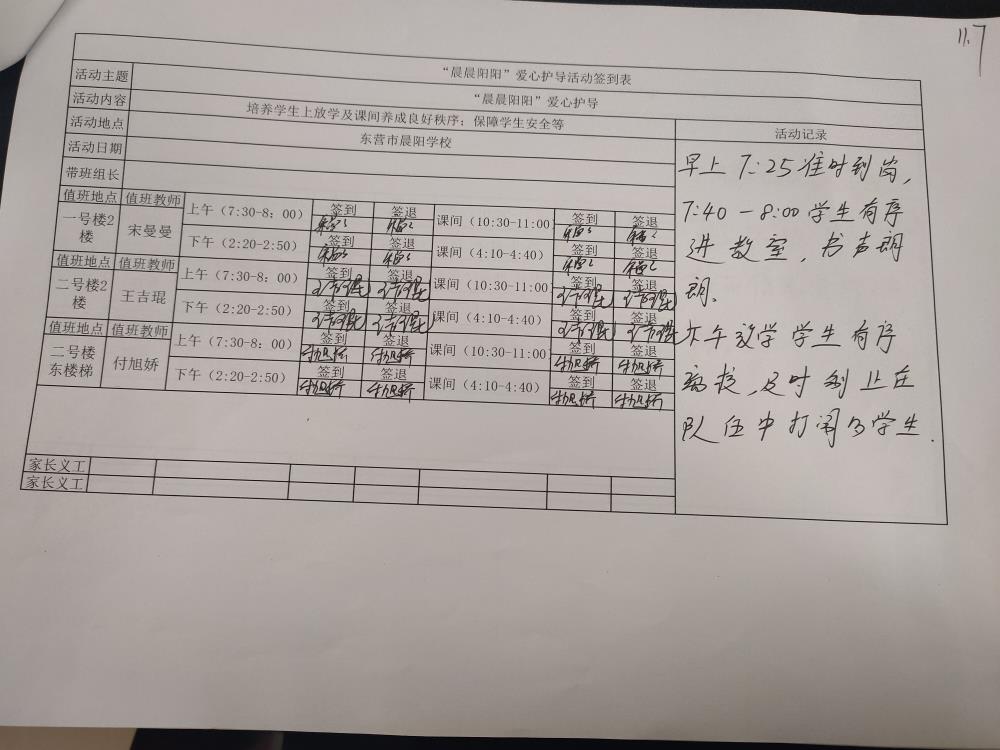 11.7
“晨晨阳阳”爱心护导活动签到表
活动主题 “晨晨阳阳”爱心护导
活动内容 培养学生上放学及课间养成良好秩序；保障学生安全等 活动记录
活动地点 东营市晨阳学校
活动日期
带班组长
值班地点 值班教师 上午（7:30-8：00） 签到 签退 课间（10:30-11:00 签到 签退
一号楼2楼 宋曼曼
下午（2:20-2:50） 签到 签退 课间（4:10-4:40） 签到 签退
值班地点 值班教师 上午（7:30-8：00） 签到 签退 课间（10:30-11:00 签到 签退
王吉琨 王吉琨 王吉琨 王吉琨
二号楼2楼 王吉琨
下午（2:20-2:50） 签到 签退 课间（4:10-4:40） 签到 签退
王吉琨 王吉琨 王吉琨 王吉琨
值班地点 值班教师 上午（7:30-8：00） 签到 签退 课间（10:30-11:00 签到 签退
付旭娇 付旭娇 付旭娇 付旭娇
二号楼东楼梯 付旭娇
下午（2:20-2:50） 签到 签退 课间（4:10-4:40） 签到 签退
付旭娇 付旭娇 付旭娇 付旭娇
家长义工
家长义工
早上7:25准时到岗，
7:40-8:00学生有序
进教室，书声朗
朗。
下午放学学生有序
离校，及时制止在
队伍中打闹的学生.